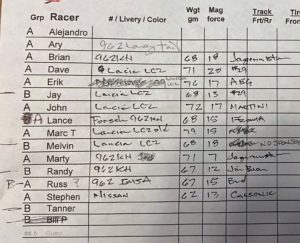 Grp Racer # / Livery / Color Wgt gm Mag force Track Frt/Rr
A Alejandro
A Ary 962 Long Tail
A Brian 962KH 68 18 Jagermeister
A Dave Lancia LC2 71 20 #29
A Erik 76 17
B Jay Lancia LC2 68 13 #29
A John Lancia LC2 72 17 MARTINI
A Lance Porsche 962KH 68 15
A Marc T Lancia LC2 old 79 15
B Melvin Lancia LC2 68 18
A Marty 962KH 71 7 Jagermeister
B Randy 962KH 67 12 Jim Beam
B A Russ ? 962 IMSA 67 15 Bud
A Stephen Nissan 62 13 Calsonic
B Tanner
B Bill P